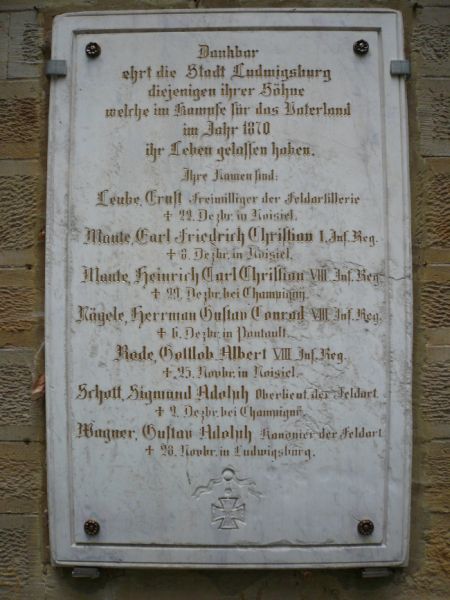 Dankbar
ehrt die Stadt Ludwigsburg
diejenigen ihrer Söhne
welche im Kampfe für das Vaterland
im Jahr 1870
ihr Leben gelassen haben.
Ihre Namen sind:
Leube, Ernst Freiwilliger der Feldartillerie
+ 22. Dezbr. in Noisiel.
Maute, Carl Friedrich Christian I. Inf. Reg.
+ 8. Dezbr. in Noisiel.
Maute, Heinrich Carl Christian VIII. Inf. Reg.
+ 29. Dezbr. bei Champigny.
Nägele, Herrman Gustav Conrad VIII. Inf. Reg.
+ 6. Dezbr. in Pontault.
Rode, Gottlob Albert VIII. Inf. Reg.
+ 25. Novbr. in Noisiel.
Schott, Sigmund Adolph Oberlieut. der Feldart.
+ 2. Dezbr. bei Champigny.
Wagner, Gustav Adolph Kanonier der Feldart.
+ 28. Novbr. in Ludwigsburg.